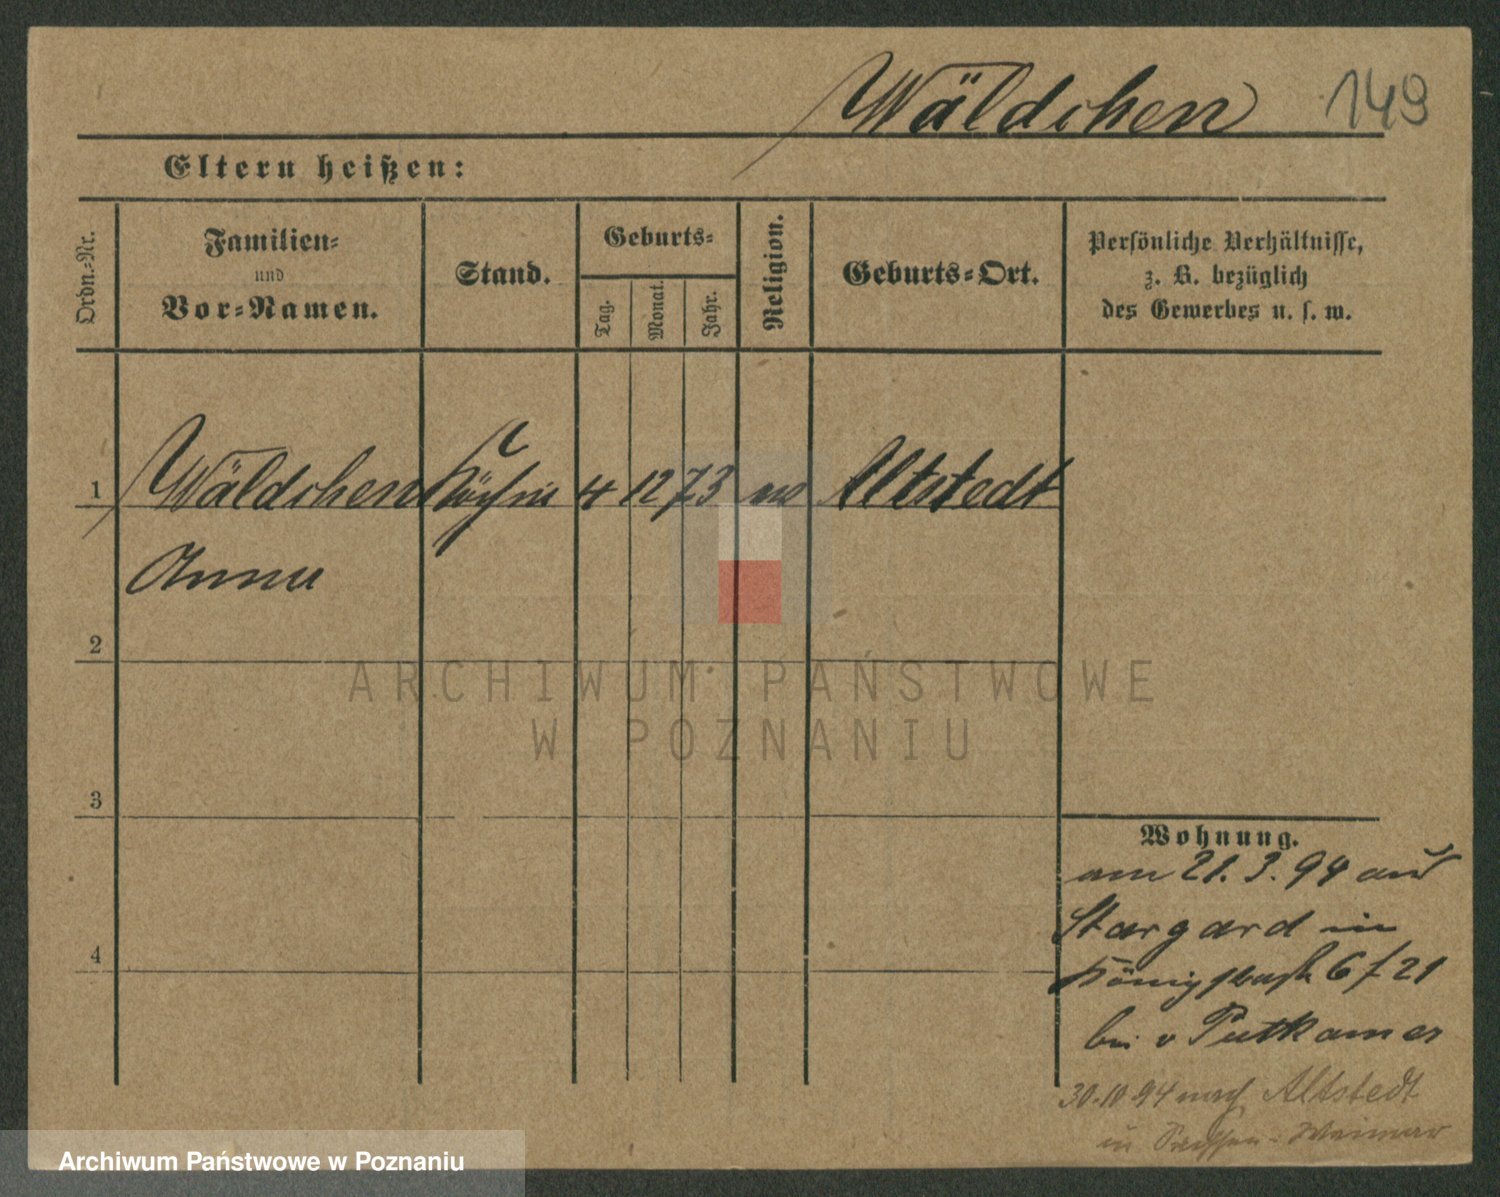 Wäldchen 149
Eltern heißen:
Ordn.-Nr.
Familien-
und
Vor-Namen.
Stand.
Geburts-
Tag.
Monat.
Jahr.
Religion.
Geburts-Ort.
Persönliche Verhältnisse,
z. B. bezüglich
des Gewerbes u. s. w.
1 Wäldchen Köchin 4 12 73 ev Altstedt
Anna
2
3
4
Wohnung.
am 21. 3. 94 aus
Stargard in
6/21
bei v Putkamer
30.10.94 nach Altstedt
in Sachsen-Weimar
ARCHIWUM PAŃSTWOWE
W POZNANIU
Archiwum Państwowe w Poznaniu